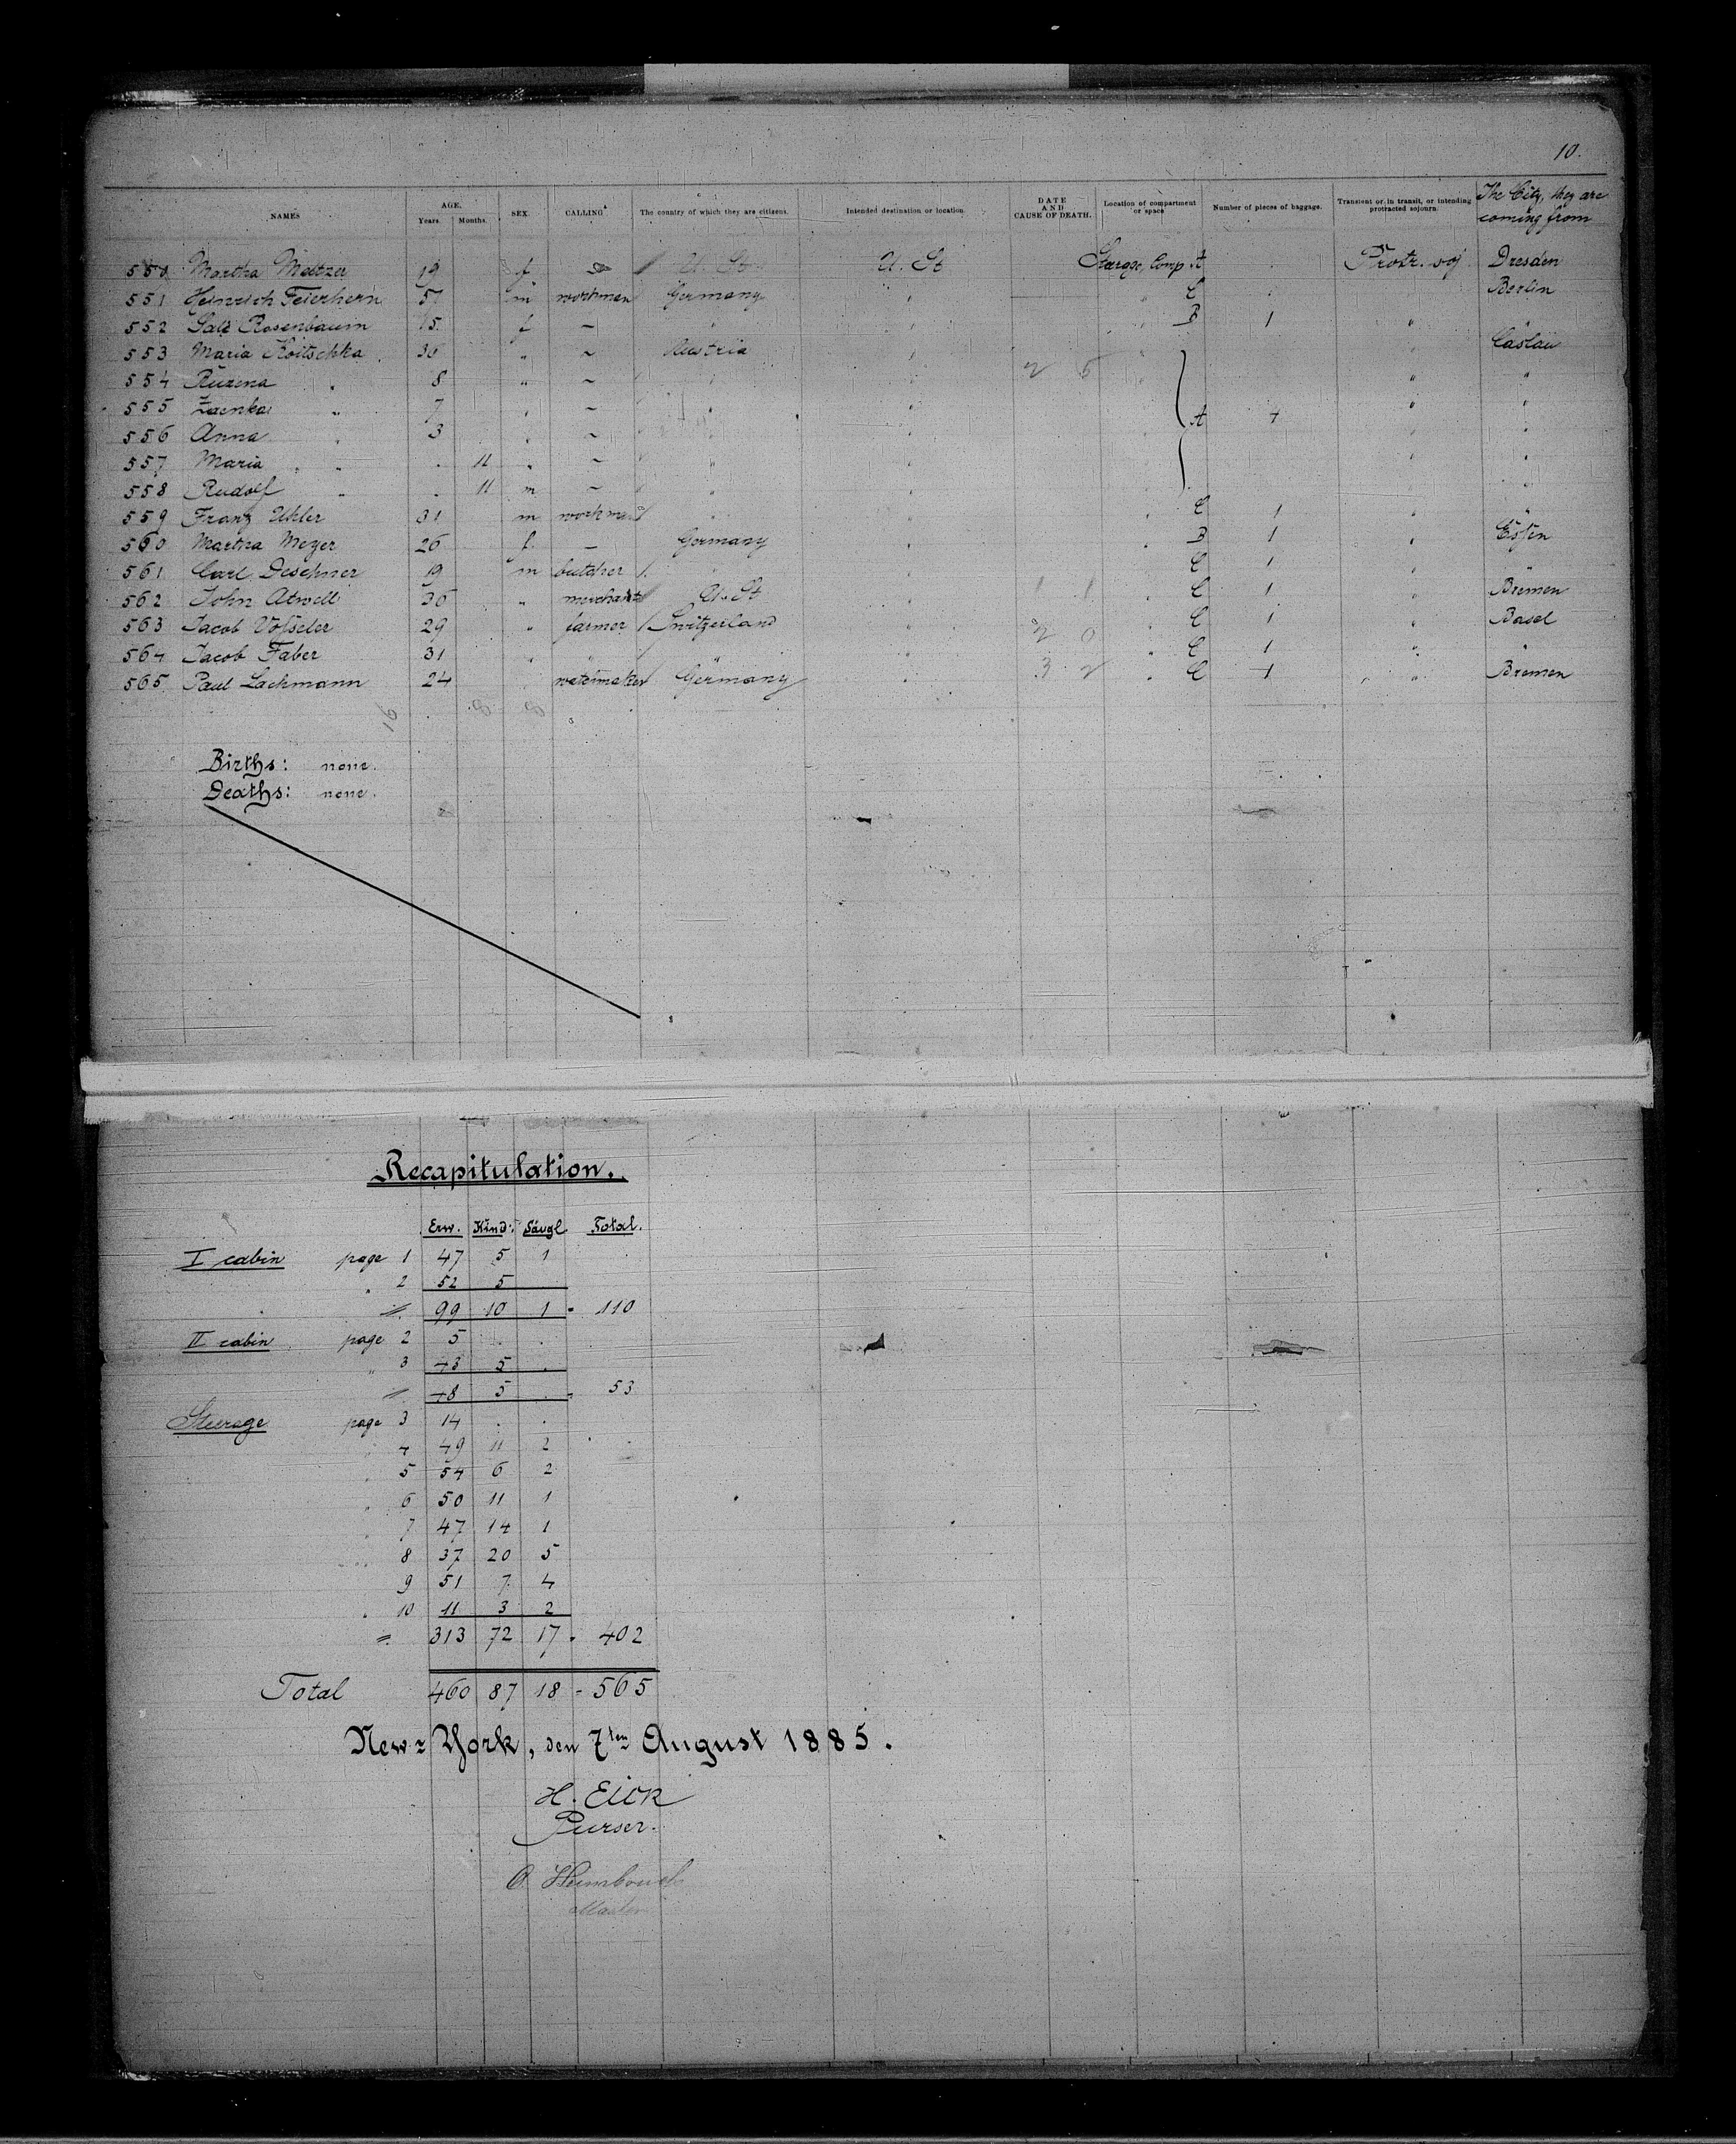 10.
NAMES AGE. Years. Months. SEX. CALLING The country of which they are citizens. Intended destination or location DATE AND CAUSE OF DEATH. Location of compartment or space Number of pieces of baggage. Transient or in transit, or intending protracted sojourn. The City, they are coming from
550 Martha Meltzer 19 f U. St U. St Comp. A Protr. soj Dresden
551 Heinrich Feierhern 57 m workman Germany " " C " Berlin
552 Rosenbaum 15 f — " " " B 1 " "
553 Maria Koitschka 36 " ~ Austria " " " Caslau
554 Ruzena " 8 " ~ " " 2 6 " " "
555 Zdenka " 7 " ~ " " A 4 " "
556 Anna " 3 " ~ " " " "
557 Maria " " . 11 " ~ " " " "
558 Rudolf " . 11 m ~ " " " "
559 Franz Uhler 31 m workman " " " C 1 " "
560 Martha Meyer 26 f. — Germany " " B 1 " Essen
561 Carl Deschner 19 m butcher " " C 1 " "
562 John Atwell 36 " merchant U. St " 1 1 " C 1 " Bremen
563 Jacob 29 " farmer Switzerland " 2 0 " C 1 " Basel
564 Jacob Faber 31 " " " " " C 1 " "
565 Paul Lachmann 24 " Germany " 3 2 " C 1 " Bremen
16
Births: none.
Deaths: none.
Recapitulation.
Erw. Kind: Säugl. Total.
I cabin page 1 47 5 1
" 2 52 5
= 99 10 1 - 110
II cabin page 2 5 . .
" 3 43 5 .
= 48 5 . = 53
Steerage page 3 14 . .
" 4 49 11 2
" 5 54 6 2
" 6 50 11 1
" 7 47 14 1
" 8 37 20 5
9 51 7 4
" 10 11 3 2
= 313 72 17 - 402
Total 460 87 18 - 565
New-York, den 7ten August 1885.
H. Eick
Purser.
Master